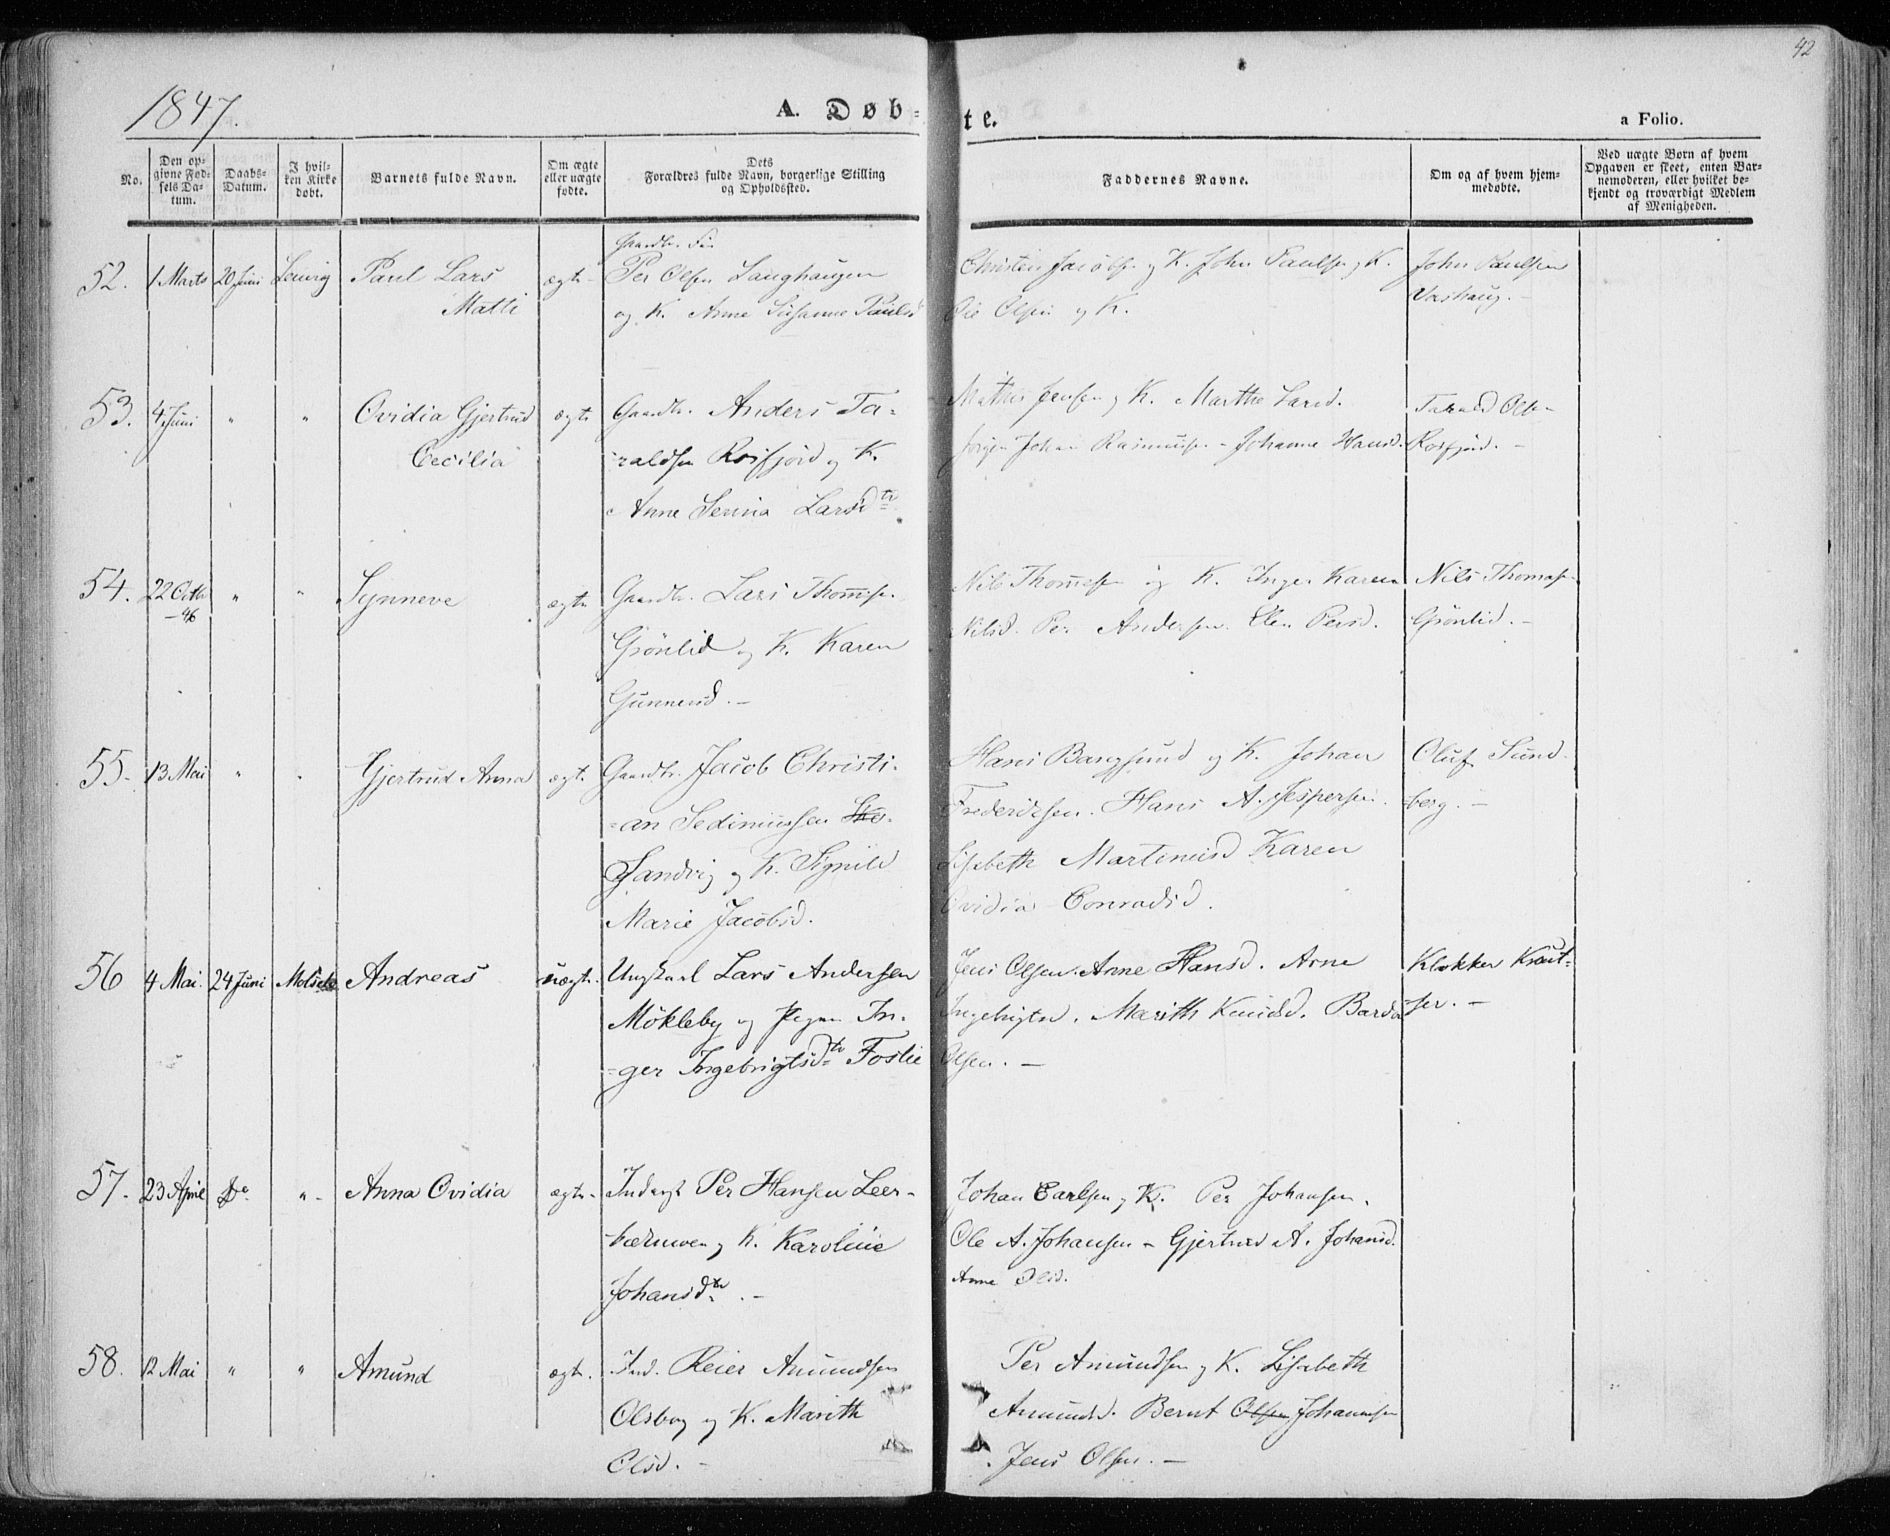 42
1847.
A. Døb-
te.
a Folio.
No.
Den op-
givne Fød-
sels Da-
tum.
Daabs-
Datum.
I hvil-
ken Kirke
døbt.
Barnets fulde Navn.
Om ægte
eller uægte
fødte.
Dets
Forældres fulde Navn, borgerlige Stilling
og Opholdssted.
Faddernes Navne.
Om og af hvem hjem-
medøbte.
Ved uægte Børn af hvem
Opgaven er skeet, enten Bar-
nemoderen, eller hvilket be-
kjendt og troværdigt Medlem
af Menigheden.
52. 1 Marts 20 Juni Lenvig Paul Lars
Matti
ægte
Per Olsen Langhaugen
og K. Anne Susanne Paulsd
Christen Jacobsen og K. John Paulsen og K.
Ole Olsen og K.
John Paulsen
53. 4 Juni " " Ovidia Gjertrud
Cecilia
ægte
Gaardbr. Anders Ta-
raldsen Rosfjord og K.
Anne Larsdtr
Mathis Jensen og K. Marthe Larsd.
Jørgen Johan Rasmussen - Johanna Hansd.
Tarald Olsen
Rosfjord. -
54. 22 Octb " " Synneve
46
ægte
Gaardbr. Lars Thomesen
Grønlid og K. Karen
Gunnersd. -
Nils Thomesen og K. Inger Karen
Nilsd. Per Andersen. Elen Persd.
Nils Thomasen
Grønlid. -
55. 13 Mai " " Gjertrud Anna ægt.
Gaardbr. Jacob Christi-
-an Sedimussen
Sandvig og K. Signild
Marie Jacobsd.
Hans Bangsund og K. Johan
Frederiksen. Hans A. Jespersen.
Lisabeth Martinusd Karen
Ovidia Conradsd.
Oluf Sund-
berg. -
56 4 Mai. 24 Juni Molselv Andreas uægt.
Ungkarl Lars Andersen
Mökleby og Pigen In-
-ger Ingebrigtsdtr Foslie
Jens Olsen. Anne Hansd. Arne
Ingebrigtsd. Marith Knudsd. Bardo
Olsen. -
Klokker Knut-
sen. -
57. 23 April Do " Anna Ovidia ægte
Inderst Per Hansen
og K. Karoline
Johansdtr. -
Johan Carlsen og K. Per Johansen.
Ole A. Johansen - Gjertrud A. Johansd.
Anne Olsd.
58. 12 Mai " " Amund ægt.
Ind. Reier Amundsen
Olsborg og K. Marith
Olsd. -
Per Amundsen og K. Lisabeth
Amundsd. Bernt Olsen Johannesen
Jens Olsen. -